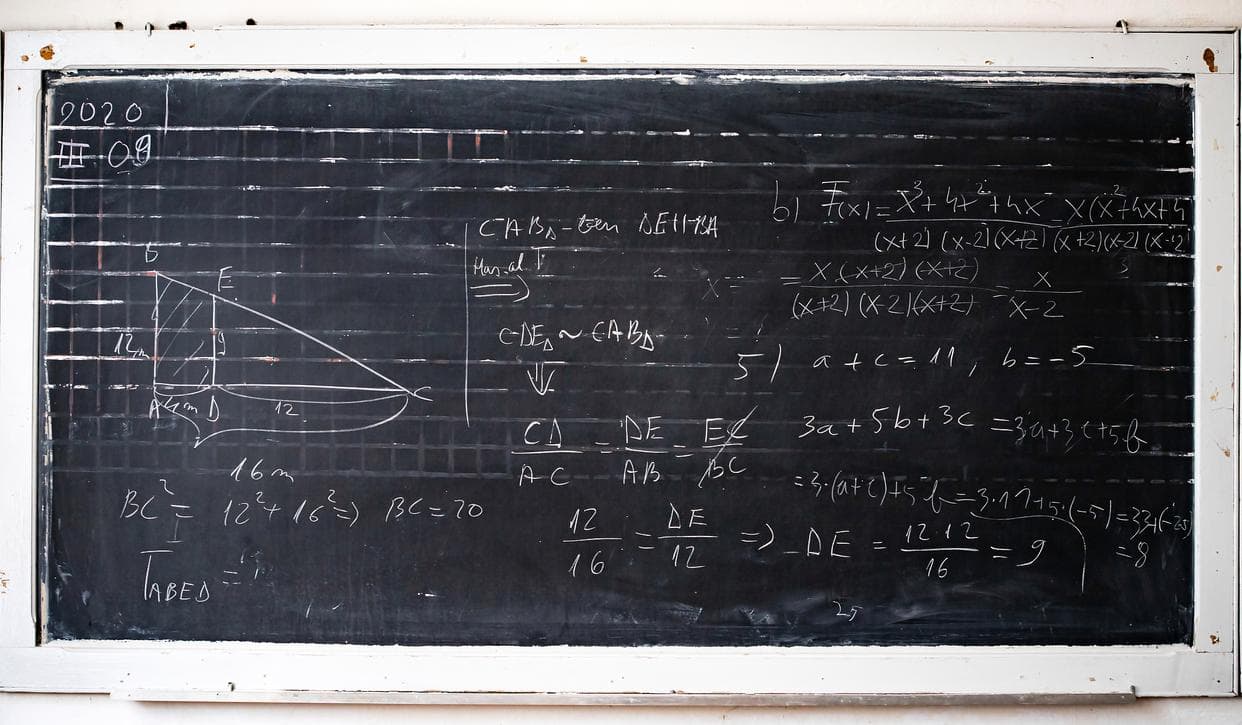 2020
III 09
B
E
12m
9
A 4m D
12
C
16 m
BC² = 12² + 16² => BC = 20
T_ABED =
CAB△ - ben DE || BA
=>
CDE△ ~ CAB△
⇓
CD/AC = DE/AB = EC/BC
12/16 = DE/12 => DE = 12·12/16 = 9
b) F(x) = x³+4x²+4x/(x+2)(x-2)(x+2) = x(x²+4x+4/(x+2)(x-2)(x+2
= x·(x+2)(x+2)/(x+2)(x-2)(x+2) = x/x-2
5) a + c = 11, b = -5
3a + 5b + 3c = 3a+3c+5b
= 3·(a+c)+5b = 3·11+5·(-5) = 33+(-25)
= 8
25